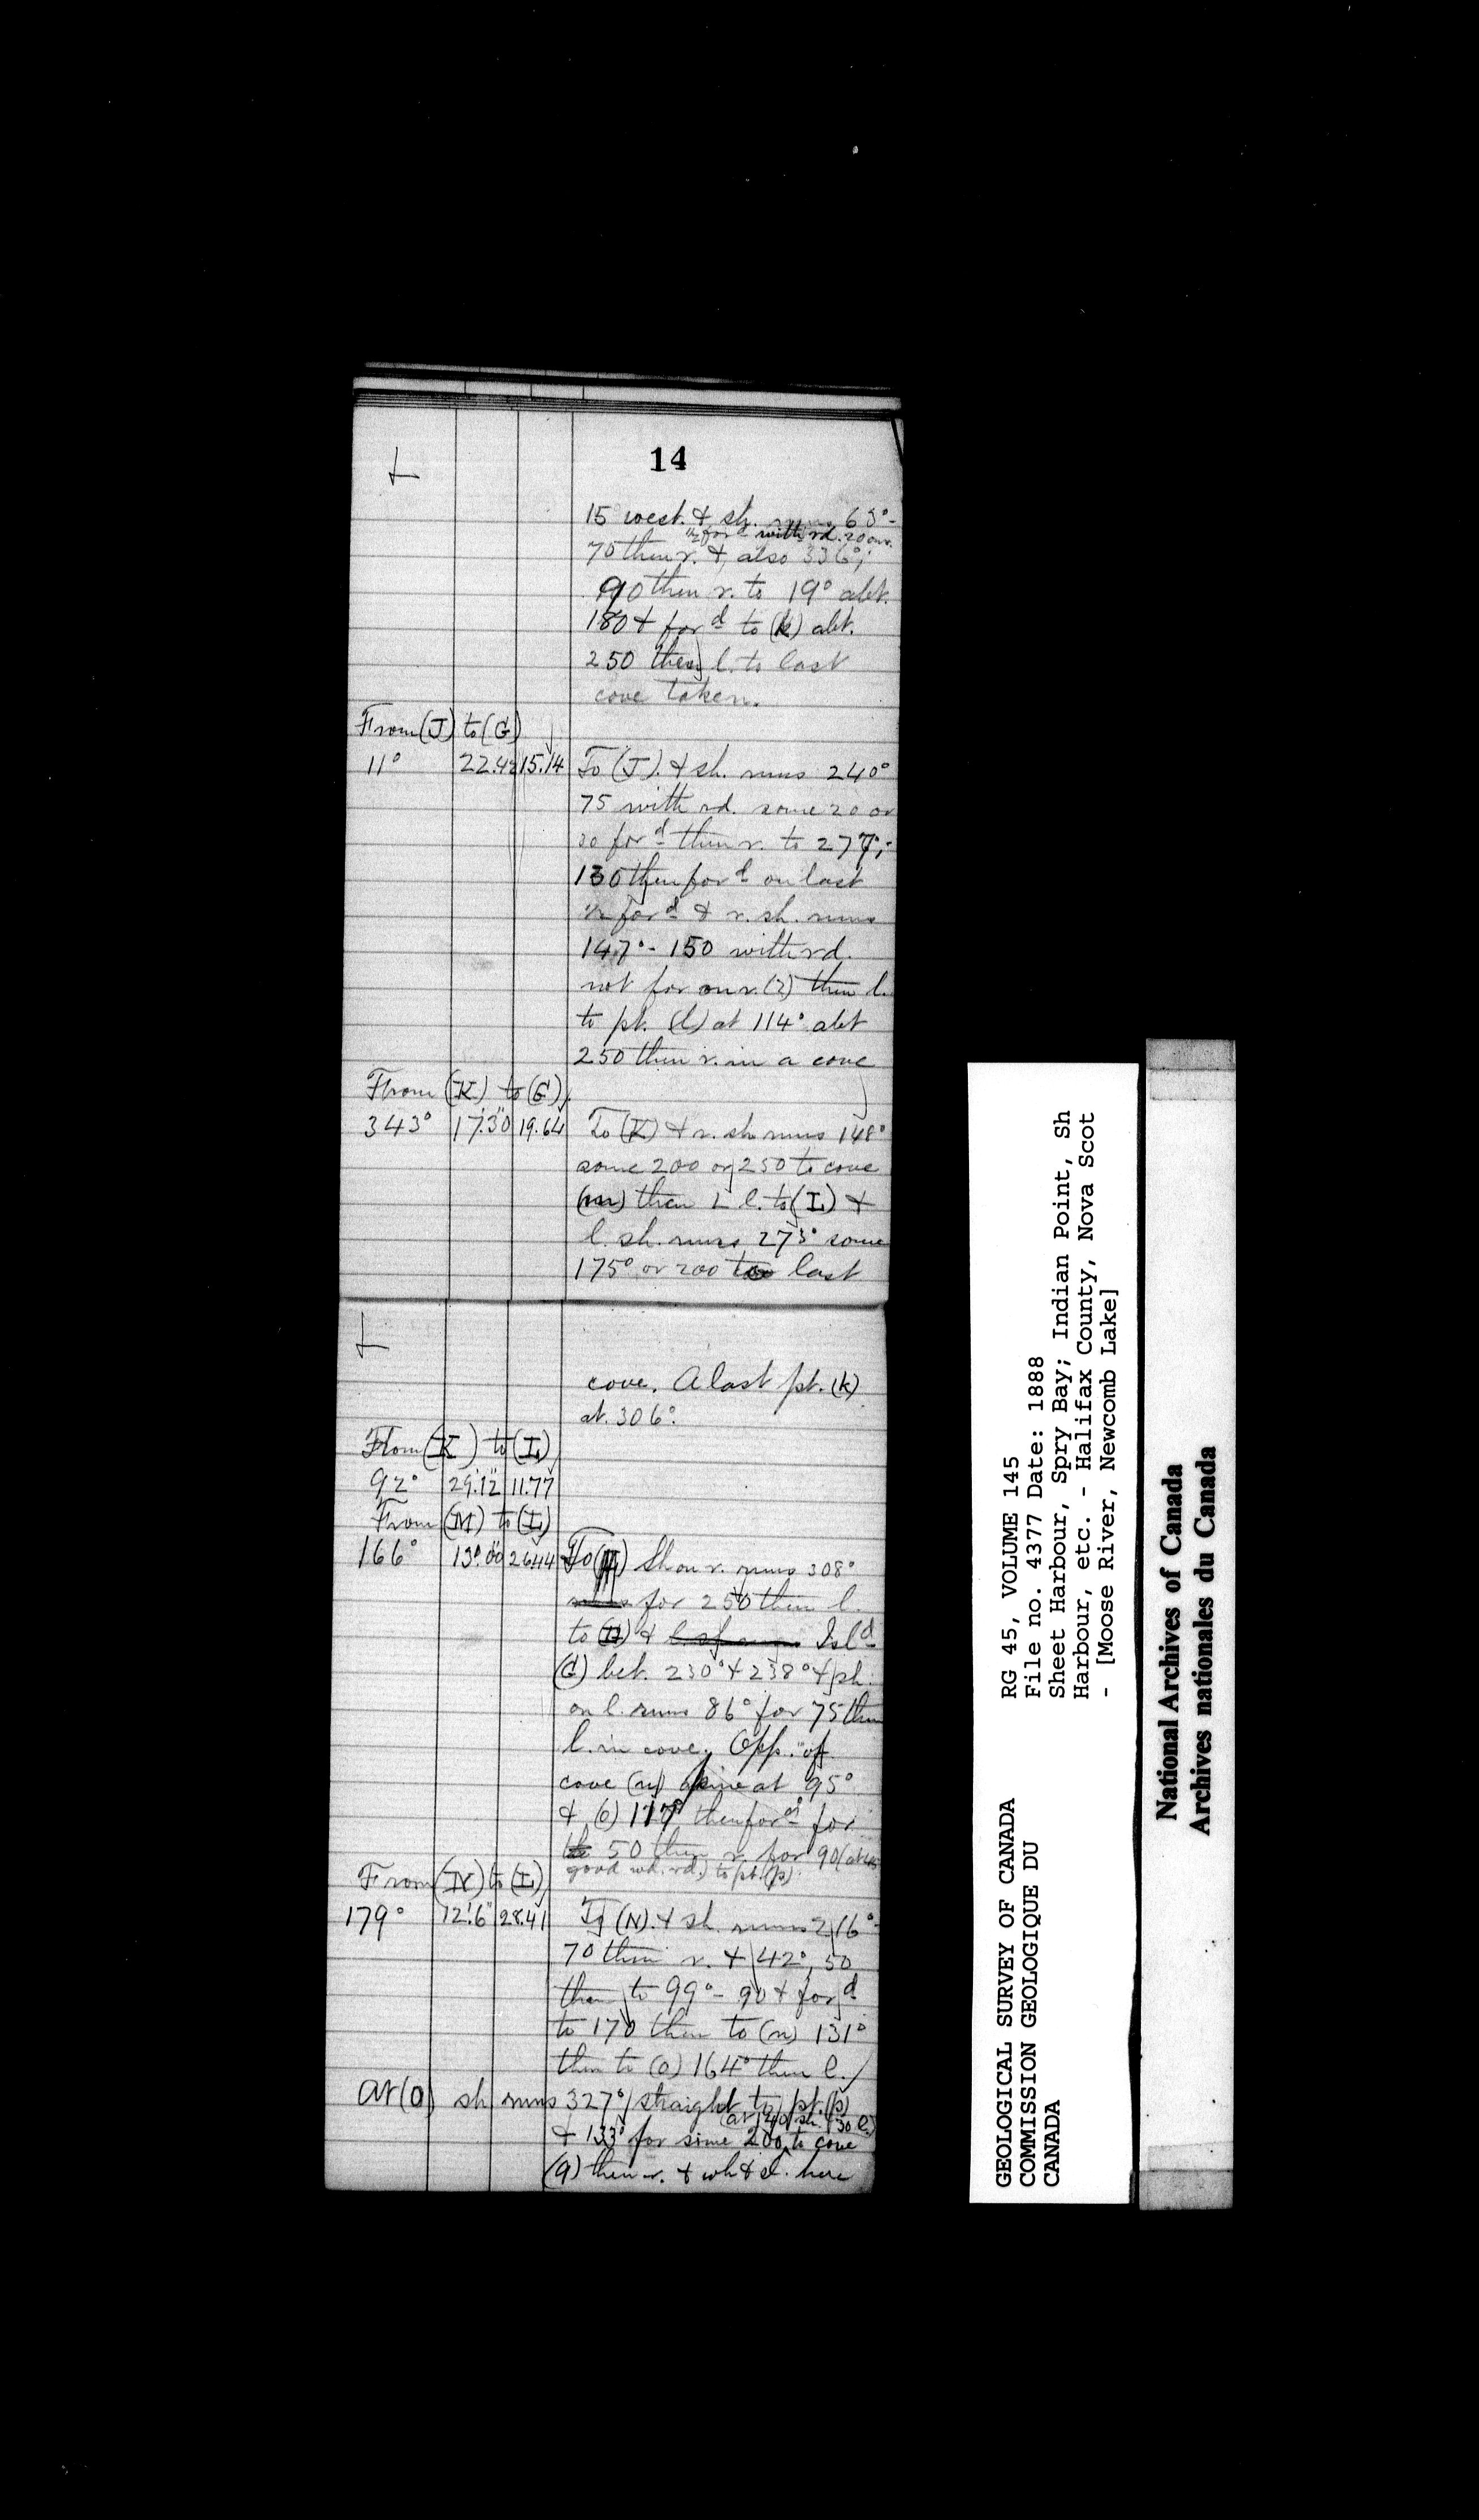 14
15 west. & sh. runs 63°-
½ for^d with rd. 20 on r.
70 then r. & also 336°;
90 then r. to 19° abt.
180 & for^d to (k) abt.
250 then l. to last
cove taken.
From (J) to (G)
11° 22.42 15.14 To (J). & sh. runs 240°
75 with rd. some 20 or
30 for^d then r. to 277°;-
130 then for^d on last
½ for^d & r. sh. runs
147°- 150 with rd.
not for on r. (2) then l.
to pt. (l) at 114° abt
250 then r. in a cove
From (K) to (G)
343° 17'.30" 19.64 To (K) & r. sh. runs 148°
some 200 or 250 to cove
(m) then l. to (L) &
l. sh. runs 273° some
175° or 200 to last
cove. A last pt. (k)
at 306°.
From (K) to (L)
92° 29'.12" 11.77
From (M) to (L)
166° 13'.00" 26.44 To (M) Sh on r. runs 308°
for 250 then l.
to & Isl^d
(G) bet. 230° & 238° & sh.
on l. runs 86° for 75 then
l. in cove. Opp. of
cove (n) at 95°
& (o) 117° then for^d for
50 then r. for 90 (at
good wd. rd.) to pt. (p)
From (N) to (L)
179° 12'.6" 28.41 To (N). & sh. runs 216°-
70 then r. & 42°, 50
then to 99°- 90 & for^d
to 170 then to (n) 131°
then to (o) 164° then l.
At (O) sh runs 327° straight to pt. (p)
(at 140 sh. 30 l.)
& 133° for some 200 to cove
(q) then r. & wh & sl. here
RG 45, VOLUME 145
File no. 4377 Date: 1888
Sheet Harbour, Spry Bay; Indian Point, Sh
Harbour, etc. - Halifax County, Nova Scot
- [Moose River, Newcomb Lake]
GEOLOGICAL SURVEY OF CANADA
COMMISSION GEOLOGIQUE DU
CANADA
National Archives of Canada
Archives nationales du Canada